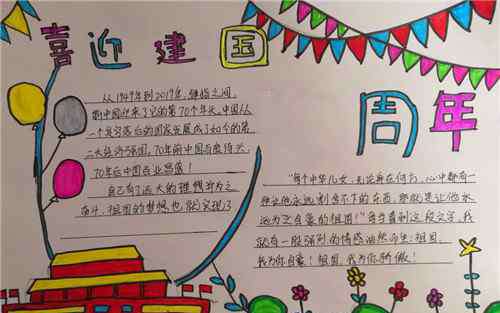 喜迎建国
周年
从1949年到2019年,弹指之间,
新中国迎来了它的第70个年头。中国从
一个贫穷落后的国家发展成了如今的第
二大经济强国。70年前中国百废待兴,
70年后中国百业昌盛!
自己有了远大的理想并为之
奋斗,祖国的梦想也就实现了
“每个中华儿女,无论身在何方,心中都有一
让他永远割舍不了的东西,那就是让他永
远为之自豪的祖国!”每当看到这段文字,我
就有一股强烈的情感油然而生:祖国,
我为你自豪!祖国,我为你骄傲!